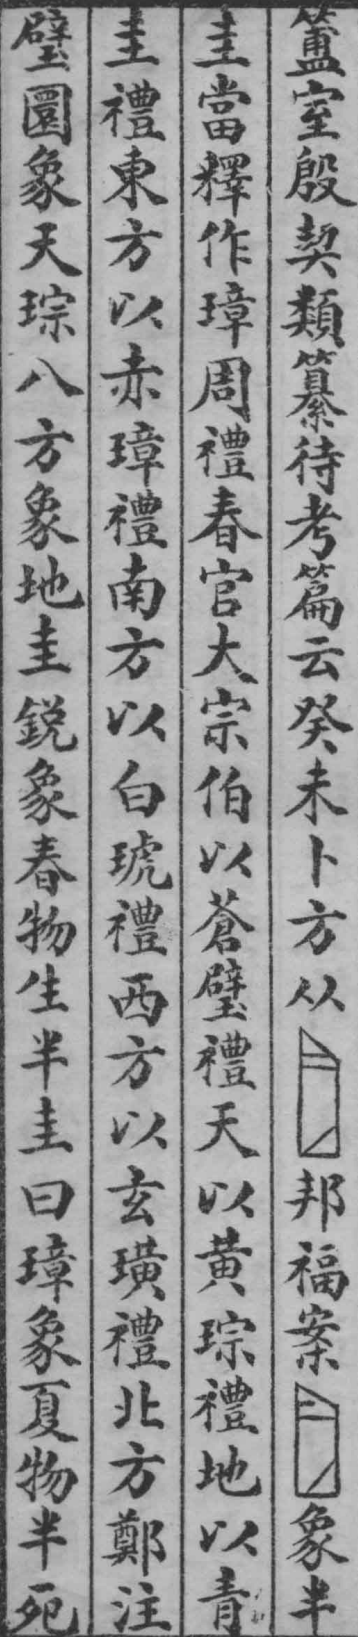 簠室殷契類纂待考篇云癸未卜方从邦福案象半
圭當釋作璋周禮春官大宗伯以蒼璧禮天以黃琮禮地以青
圭禮東方以赤璋禮南方以白琥禮西方以玄璜禮北方鄭注
璧圜象天琮八方象地圭銳象春物生半圭曰璋象夏物半死